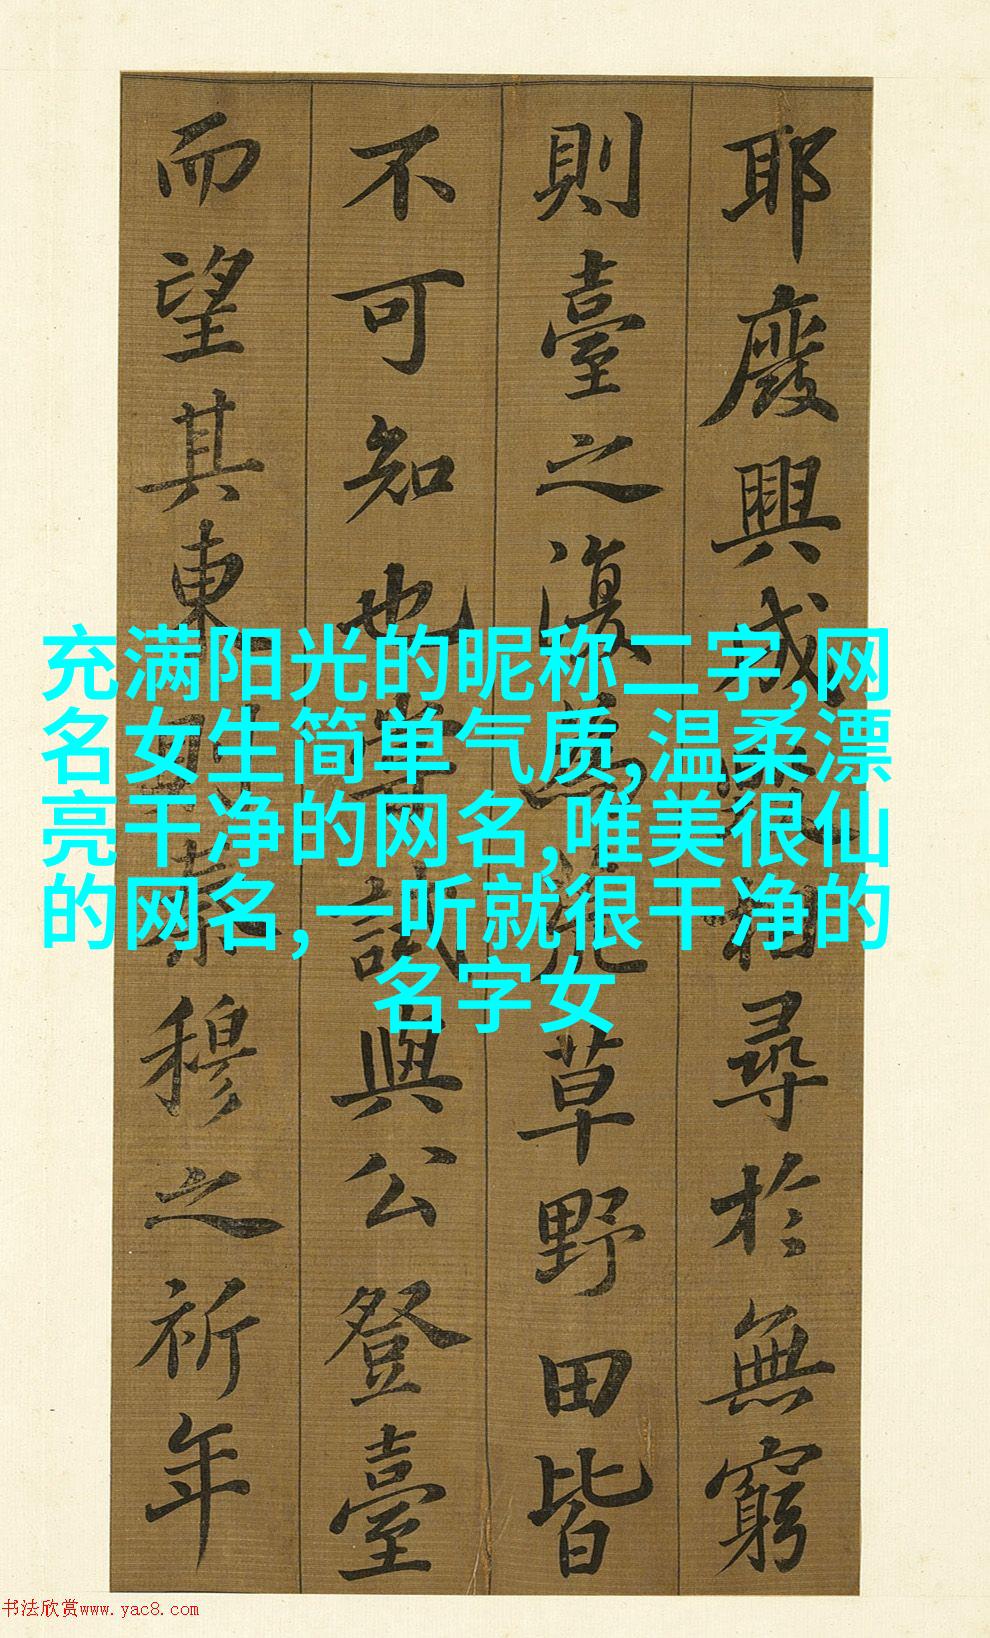 耶廢興成毀相尋於無窮
則臺之復為荒草野田皆
不可知也嘗試與公登臺
而望其東則秦穆之祈年
充满阳光的昵称二字,网
名女生简单气质,温柔漂
亮干净的网名,唯美很仙
的网名,一听就很干净的
名字女
书法欣赏www.yac8.com